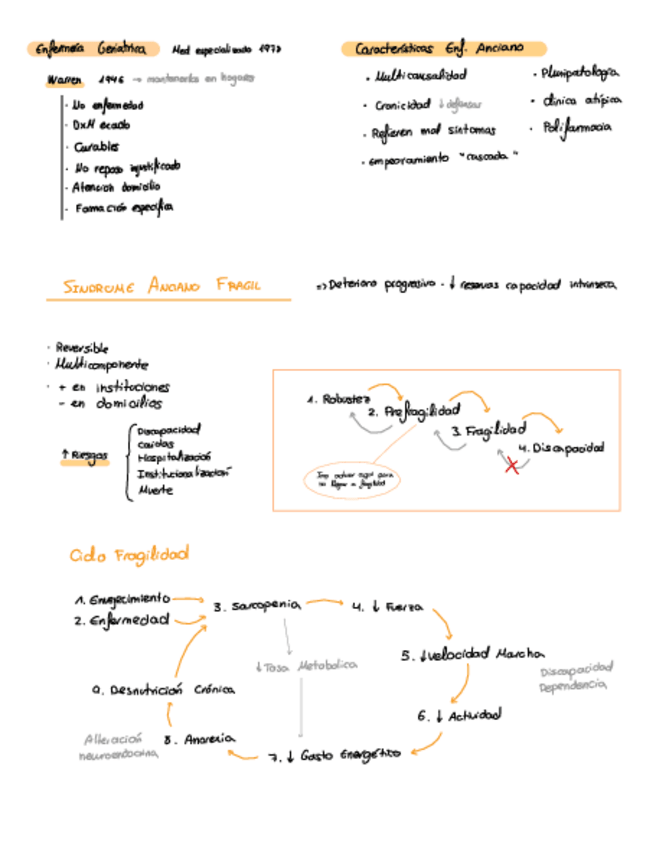 Enfermería Geriátrica Med especializado 1978
Warren 1946 → mantenerles en hogares
· No enfermedad
· DxN ecado
· Curables
· No reposo injustificado
· Atención domicilio
· Formación específica
Características Enf. Anciano
· Multicausalidad
· Cronicidad ↓ defensas
· Refieren mal síntomas
· empeoramiento "cascada"
· Pluripatología
· clínica atípica
· Polifarmacia
SINDROME ANCIANO FRAGIL
=> Deterioro progresivo · ↓ reservas capacidad intrínseca
· Reversible
· Multicomponente
· + en instituciones
- en domicilios
↑ Riesgos
Discapacidad
caídas
Hospitalización
Institucionalización
Muerte
1. Robustez
2. Prefragilidad
3. Fragilidad
4. Discapacidad
Imp actuar aquí para
no llegar a fragilidad
Ciclo Fragilidad
1. Envejecimiento
2. Enfermedad
3. Sarcopenia
4. ↓ Fuerza
5. ↓ Velocidad Marcha
↓ Tasa Metabolica
Discapacidad
Dependencia
9. Desnutrición Crónica
6. ↓ Actividad
Alteración
neuroendocina
8. Anorexia
7. ↓ Gasto Energético